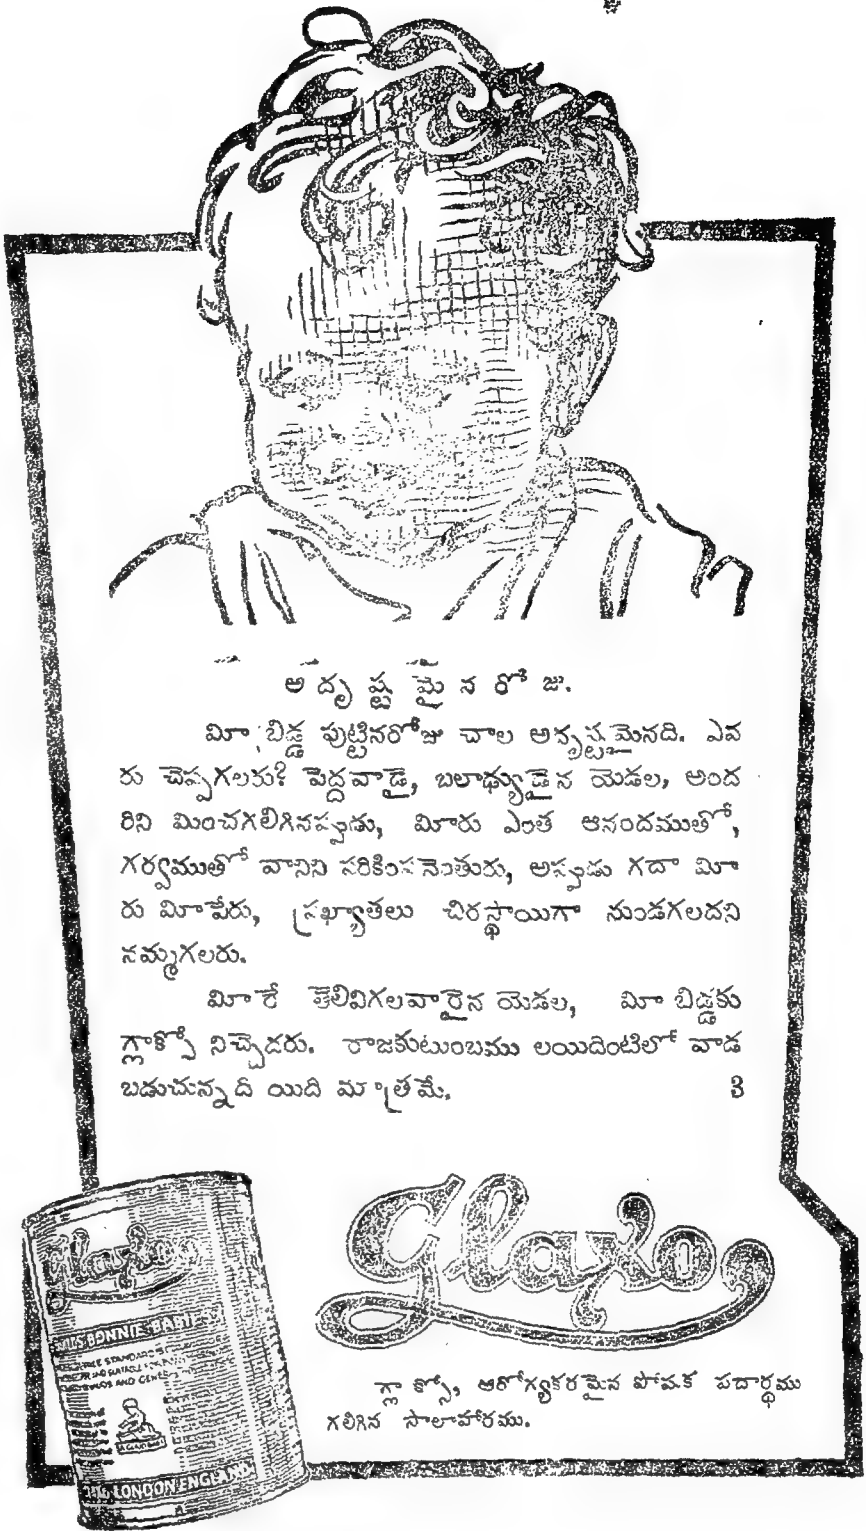 అదృష్టమైనరోజు.
మీ బిడ్డ పుట్టినరోజు చాల అదృష్టమైనది. ఎవ
రు చెప్పగలరు? పెద్దవాడై, బలాఢ్యుడైన యెడల, అంద
రిని మించగలిగినప్పుడు, మీరు ఎంత ఆనందముతో,
గర్వముతో వానిని పరికింపనెంతురు, అప్పుడు గదా మీ
రు మీపేరు, ప్రఖ్యాతలు చిరస్థాయిగా నుండగలదని
నమ్మగలరు.
మీరే తెలివిగలవారైన యెడల, మీ బిడ్డకు
గ్లాక్సో నిచ్చెదరు. రాజకుటుంబము లయిదింటిలో వాడ
బడుచున్నది యిది మాత్రమే. 3
Glaxo
Glaxo
BONNIE BABIES
AND
LONDON ENGLAND
గ్లాక్సో, ఆరోగ్యకరమైన పోషక పదార్థము
గలిగిన పాలాహారము.